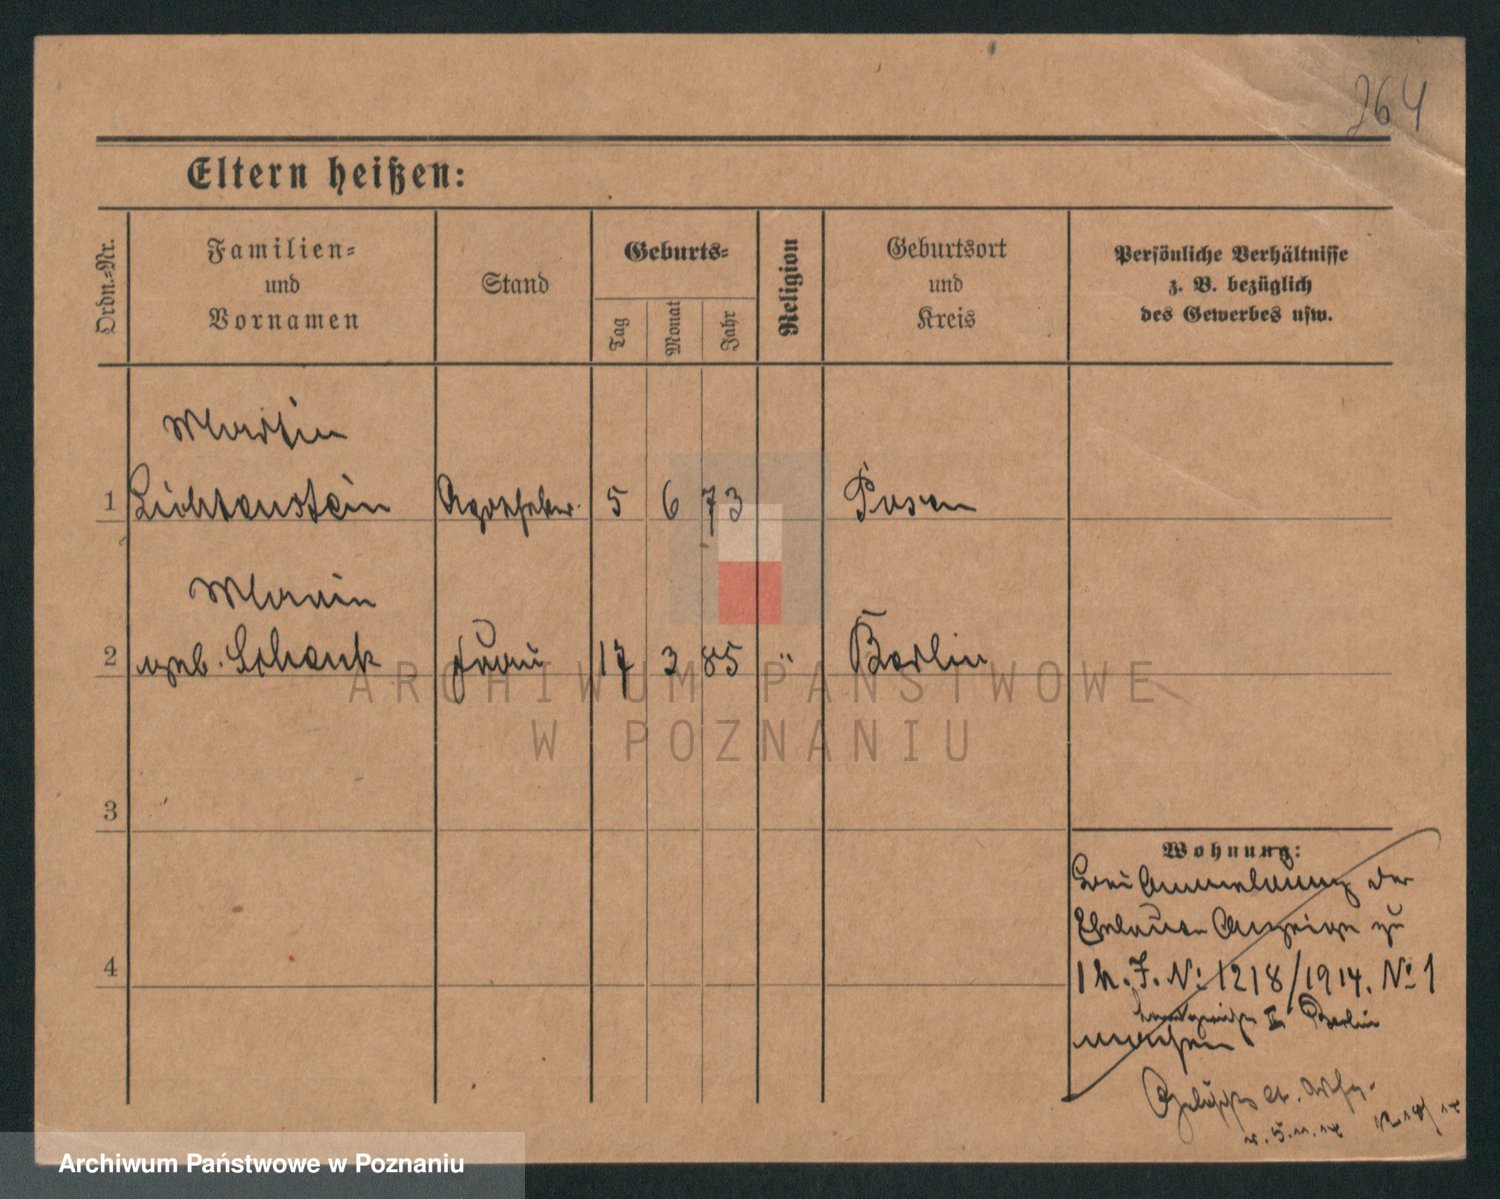 264
Eltern heißen:
Ordn.-Nr.
Familien-
und
Vornamen
Stand
Geburts-
Tag
Monat
Jahr
Religion
Geburtsort
und
Kreis
Persönliche Verhältnisse
z. B. bezüglich
des Gewerbes usw.
Martin
1 Lichtenstein Apotheker 5 6 73 Posen
Marie
2 geb. Schenk Frau 17 3 85 " Berlin
ARCHIWUM PAŃSTWOWE
W POZNANIU
3
Wohnung:
Bei Anmeldung der
Anzeige zu
4
No 1218/1914. No 1
II Berlin
machen
Archiwum Państwowe w Poznaniu